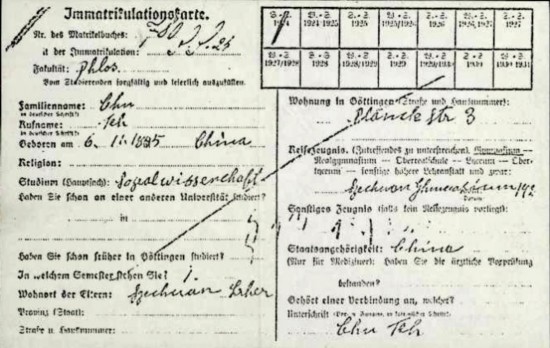 Immatrikulationskarte.
Nr. des Matrikelbuches:
u. der Immatrikulation:
Fakultät: Phlos.
Vom Studierenden sorgfältig und leserlich auszufüllen.
Familienname: Chu
Rufname: Teh
Geboren am 6. China
Religion:
Studium (Hauptfach): Sozialwissenschaft
Haben Sie schon an einer anderen Universität studiert?
in
Haben Sie schon früher in Göttingen studiert?
In welchem Semester stehen Sie? 1.
Wohnort der Eltern: Szechuan
Provinz (Staat):
Straße u. Hausnummer:
1924 1924/1925 1925 1925/1926 1926 1926/1927 1927
1927/1928 1928 1928/1929 1929 1930
Wohnung in Göttingen (Straße und Hausnummer):
Planckstr 3
Reifezeugnis: (Zutreffendes zu unterstreichen) Gymnasium —
Realgymnasium — Oberrealschule — Lyzeum — Ober-
lyzeum — sonstige höhere Lehranstalt und zwar:
Szechuan
Sonstiges Zeugnis (falls kein Reifezeugnis vorliegt):
Staatsangehörigkeit: China
(Nur für Mediziner): Haben Sie die ärztliche Vorprüfung
bestanden?
Gehört einer Verbindung an, welcher?
Unterschrift
Chu Teh